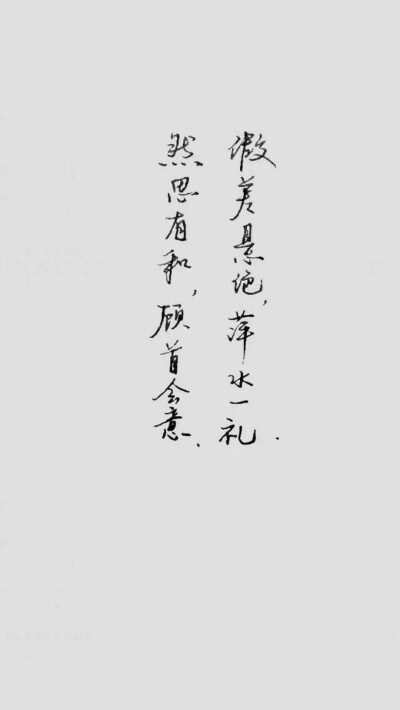 微差悬绝，萍水一礼.
然思有和，顾首会意.